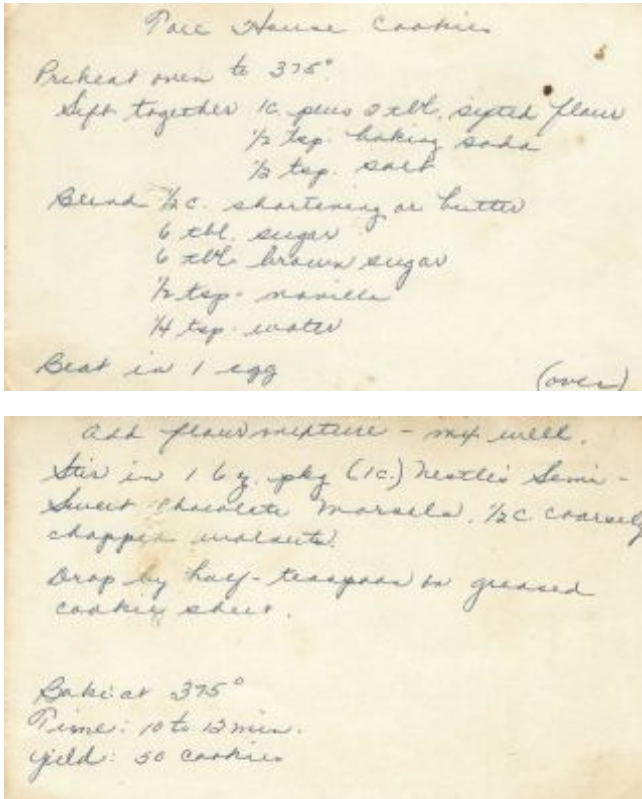 Toll House Cookies
Preheat oven to 375°
Sift together 1c. plus 2 tbl. sifted flour
1/2 tsp. baking soda
1/2 tsp. salt
Blend 1/2 c. shortening or butter
6 tbl. sugar
6 tbl. brown sugar
1/2 tsp. vanilla
1/4 tsp. water
Beat in 1 egg (over)
Add flour mixture - mix well.
Stir in 1 6 oz. pkg (1c.) Nestle's Semi-
Sweet Chocolate Morsels, 1/2 c. coarsely
chopped walnuts.
Drop by half-teaspoon on greased
cookie sheet.
Bake at 375°
Time: 10 to 12 min.
Yield: 50 cookies